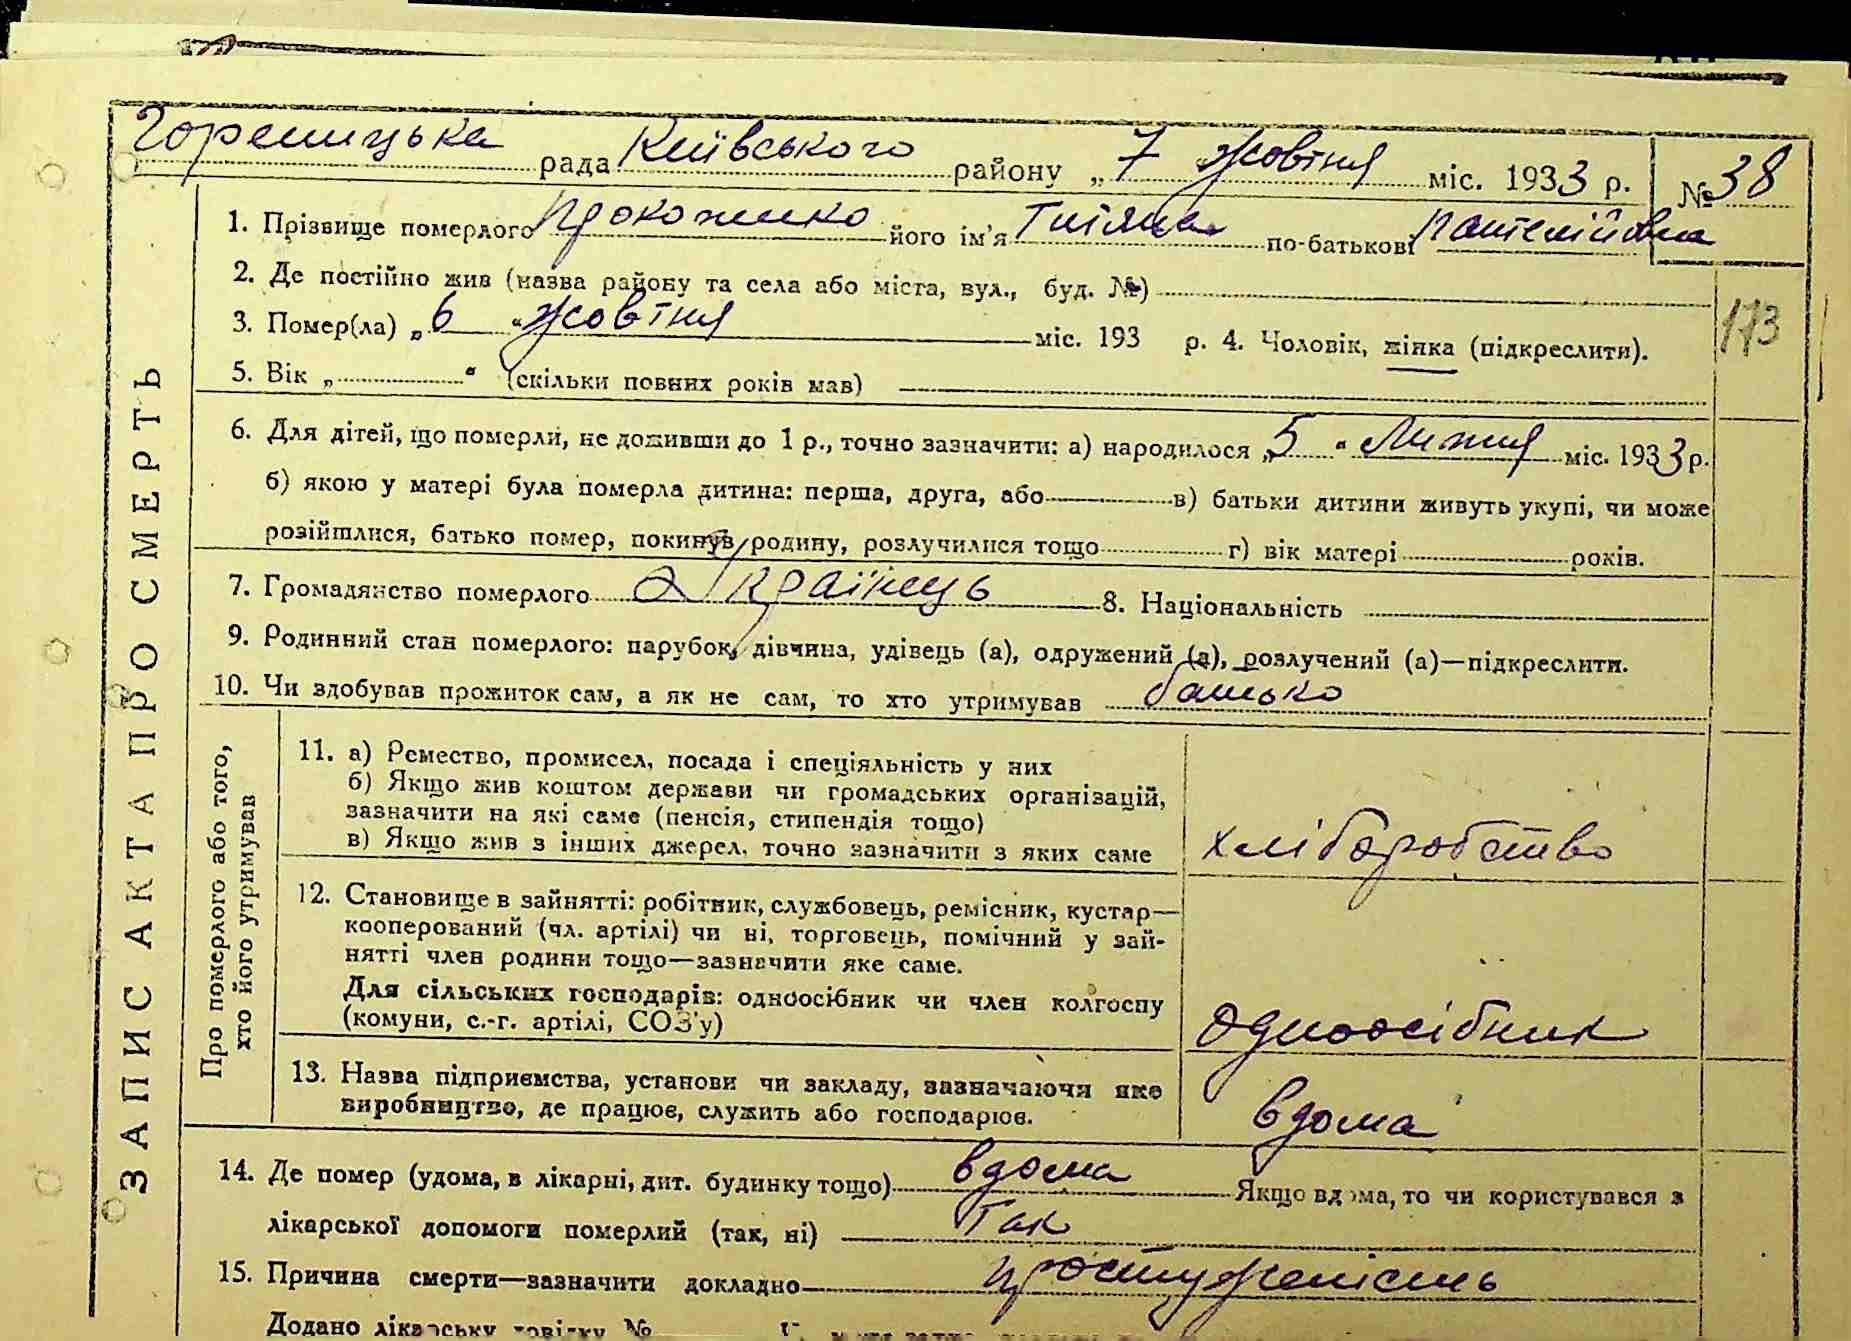 Гореницька рада Київського району „7" жовтня міс. 1933 р. № 38
1. Прізвище померлого Прокоженко його ім'я Тетяна по-батькові Пантелійовна
2. Де постійно жив (назва району та села або міста, вул., буд. №)
3. Помер(ла) „6" жовтня міс. 193 р. 4. Чоловік, жінка (підкреслити).
173
5. Вік „ " (скільки повних років мав)
6. Для дітей, що померли, не доживши до 1 р., точно зазначити: а) народилося „5" Липня міс. 1933 р.
б) якою у матері була померла дитина: перша, друга, або в) батьки дитини живуть укупі, чи може
розійшлися, батько помер, покинув родину, розлучилися тощо г) вік матері років.
7. Громадянство померлого Українець 8. Національність
9. Родинний стан померлого: парубок, дівчина, удівець (а), одружений (а), розлучений (а)—підкреслити.
10. Чи здобував прожиток сам, а як не сам, то хто утримував батько
ЗАПИС АКТА ПРО СМЕРТЬ
Про померлого або того,
хто його утримував
11. а) Ремество, промисел, посада і спеціяльність у них
б) Якщо жив коштом держави чи громадських організацій,
зазначити на які саме (пенсія, стипендія тощо)
в) Якщо жив з інших джерел, точно зазначити з яких саме
хліборобство
12. Становище в зайнятті: робітник, службовець, ремісник, кустар—
кооперований (чл. артілі) чи ні, торговець, помічний у зай-
нятті член родини тощо—зазначити яке саме.
Для сільських господарів: одноосібник чи член колгоспу
(комуни, с.-г. артілі, СОЗ'у)
одноосібник
13. Назва підприємства, установи чи закладу, зазначаючи яке
виробництво, де працює, служить або господарює.
вдома
14. Де помер (удома, в лікарні, дит. будинку тощо) вдома Якщо вдома, то чи користувався з
лікарської допомоги померлий (так, ні) так
15. Причина смерти—зазначити докладно простуженість
Додано лікарську довідку №